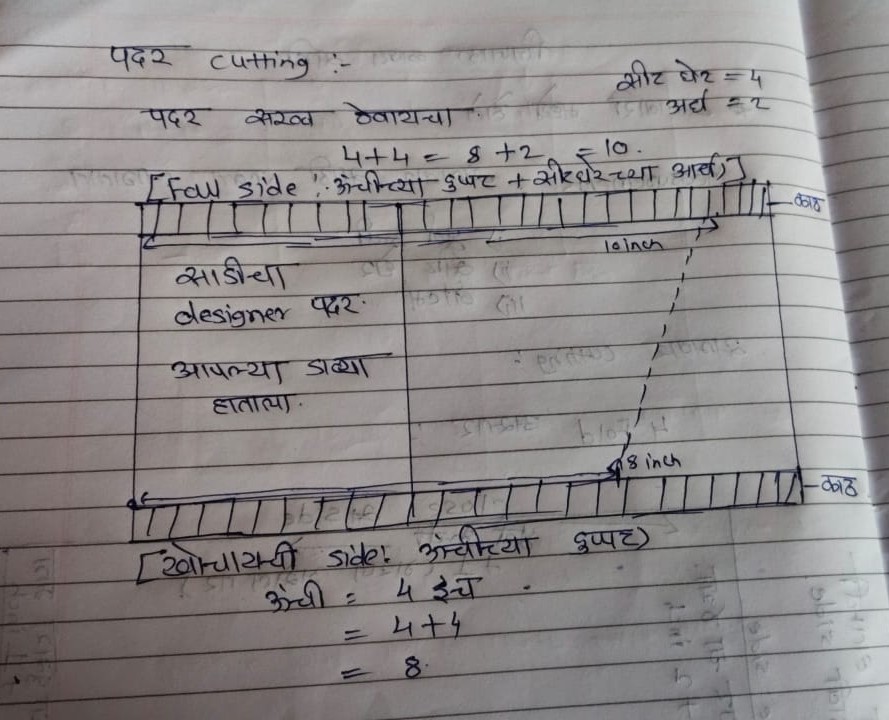 पदर cutting :-
सीट घेर = 4
अर्ध = 2
पदर सरळ ठेवायचा.
4+4 = 8 +2 = 10.
[Fall side : उंचीच्या दुप्पट + सीटघेरच्या अर्ध)]
काठ
10 inch
साडीचा
designer पदर.
आपल्या डाव्या
हाताला.
8 inch
काठ
[खोचायची side: उंचीच्या दुप्पट)
उंची = 4 इंच
= 4+4
= 8.